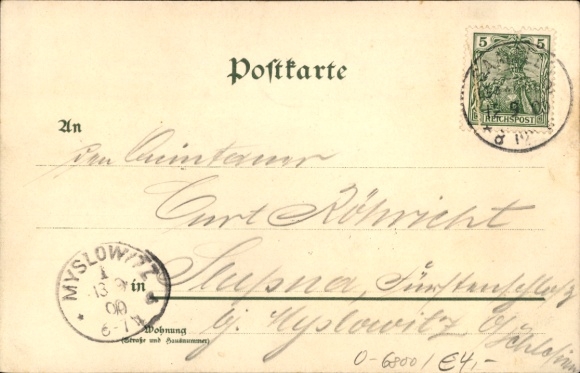 5 5
REICHSPOST
Postkarte
An
den Quintaner
Curt Röhricht
MYSLOWITZ
1
13 9
00
6-7
in Slupna, Fürstenschloß
Wohnung
(Straße und Hausnummer)
b/ Myslowitz O/
Schlesien
0-6800/€4,-